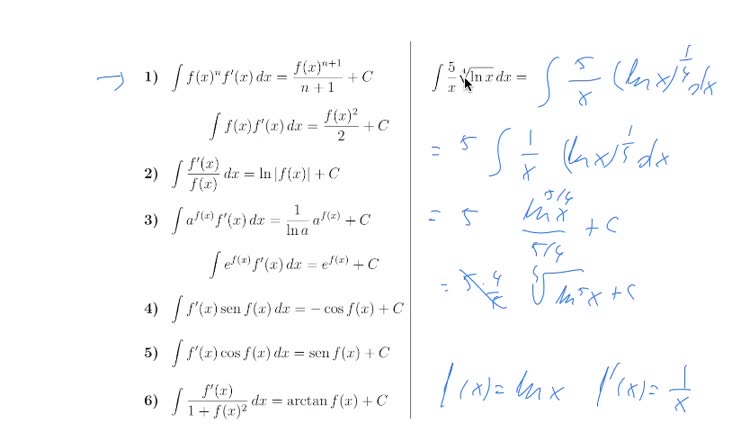 1) ∫ f(x)ⁿ f′(x) dx = f(x)ⁿ⁺¹/(n + 1) + C
∫ f(x) f′(x) dx = f(x)²/2 + C
2) ∫ f′(x)/f(x) dx = ln |f(x)| + C
3) ∫ a^{f(x)} f′(x) dx = 1/(ln a) a^{f(x)} + C
∫ e^{f(x)} f′(x) dx = e^{f(x)} + C
4) ∫ f′(x) sen f(x) dx = − cos f(x) + C
5) ∫ f′(x) cos f(x) dx = sen f(x) + C
6) ∫ f′(x)/(1 + f(x)²) dx = arctan f(x) + C
∫ 5/x ∜(ln x) dx = ∫ 5/x (ln x)^{1/4} dx
= 5 ∫ 1/x (ln x)^{1/5} dx
= 5 ln x^{5/4}/(5/4) + C
= 5 · 4/5 ∜(ln⁵ x) + C
f(x) = ln x f′(x) = 1/x